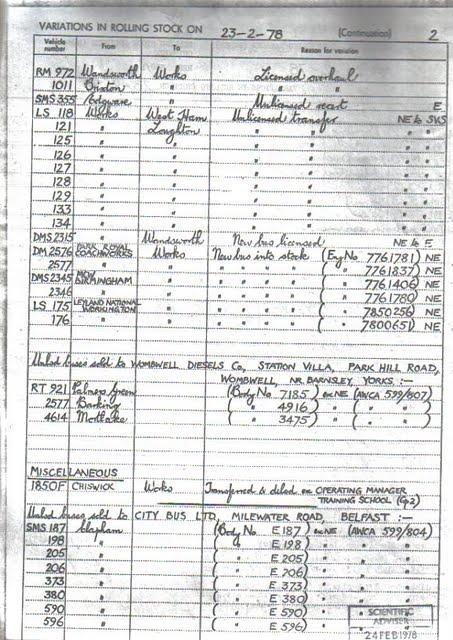 VARIATIONS IN ROLLING STOCK ON 23-2-78 (Continuation) 2
Vehicle number From To Reason for variation
RM 972 Wandsworth Works Licensed overhaul
1011 Brixton " " "
SMS 355 Edgware " Unlicensed recert E
LS 118 Works West Ham Unlicensed transfer NE to SVS
121 " Loughton " " " "
125 " " " " " "
126 " " " " " "
127 " " " " " "
128 " " " " " "
129 " " " " " "
133 " " " " " "
134 " " " " " "
DMS 2315 " Wandsworth New bus licensed NE to E
DM 2576 PARK ROYAL COACHWORKS Works New bus into stock (Eng No 7761781) NE
2577 " " " " " " ( " 7761837) NE
DMS 2345 MCW BIRMINGHAM " " " " " ( " 7761406) NE
2346 " " " " " " ( " 7761780) NE
LS 175 LEYLAND NATIONAL WORKINGTON " " " " " ( " 7850256) NE
176 " " " " " " ( " 7800651) NE
Unlicd buses sold to WOMBWELL DIESELS Co, STATION VILLA, PARK HILL ROAD,
WOMBWELL, NR. BARNSLEY, YORKS :—
RT 921 Palmers Green (Body No 7185) ex NE (AWCA 599/807)
2577 Barking ( " 4916) " ( " " )
4614 Mortlake ( " 3475) " ( " " )
MISCELLANEOUS
1850F CHISWICK Works Transferred & debed ex OPERATING MANAGER
TRAINING SCHOOL (Gp 2)
Unlicd buses sold to CITY BUS LTD, MILEWATER ROAD, BELFAST :—
SMS 187 Clapham (Body No E 187) ex NE (AWCA 599/804)
198 " ( " E 198) " ( " " )
205 " ( " E 205) " ( " " )
206 " ( " E 206) " ( " " )
373 " ( " E 373) " ( " " )
380 " ( " E 380) " ( " " )
590 " ( " E 590)
596 " ( " E 596)
SCIENTIFIC ADVISER
24 FEB 1978